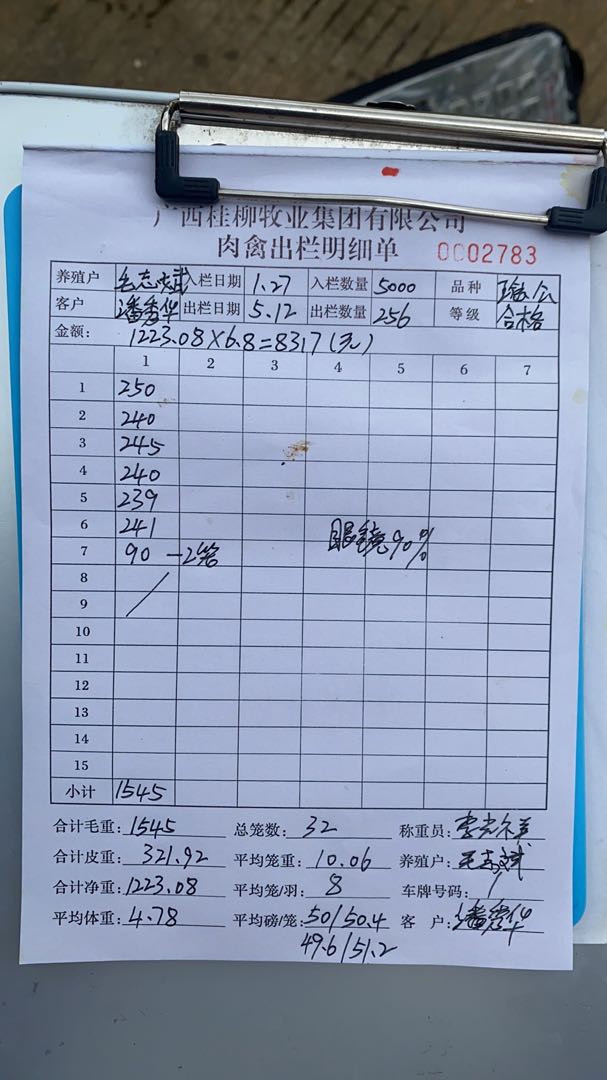 广西桂柳牧业集团有限公司
肉禽出栏明细单 0002783
养殖户 毛志斌 入栏日期 1.27 入栏数量 5000 品种 瑶公
客户 潘秀华 出栏日期 5.12 出栏数量 256 等级 合格
金额: 1223.08×6.8=8317(元)
1 2 3 4 5 6 7
1 250
2 240
3 245
4 240
5 239
6 241 眼镜90%
7 90 —2笼
8
9
10
11
12
13
14
15
小计 1545
合计毛重: 1545 总笼数: 32 称重员:
合计皮重: 321.92 平均笼重: 10.06 养殖户: 毛志斌
合计净重: 1223.08 平均笼/羽: 8 车牌号码: /
平均体重: 4.78 平均磅/笼: 50/50.4 客 户: 潘秀华
49.6/51.2